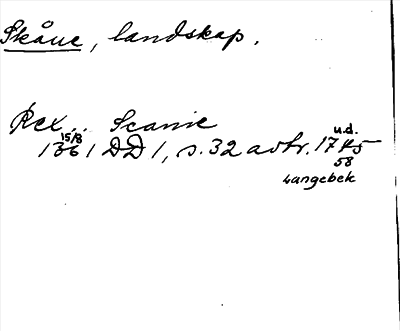 Skåne, landskap.
Rex... Scanie
15/8 u.d.
1361 DD 1, s. 32 avtr. 1745
58
Langebek